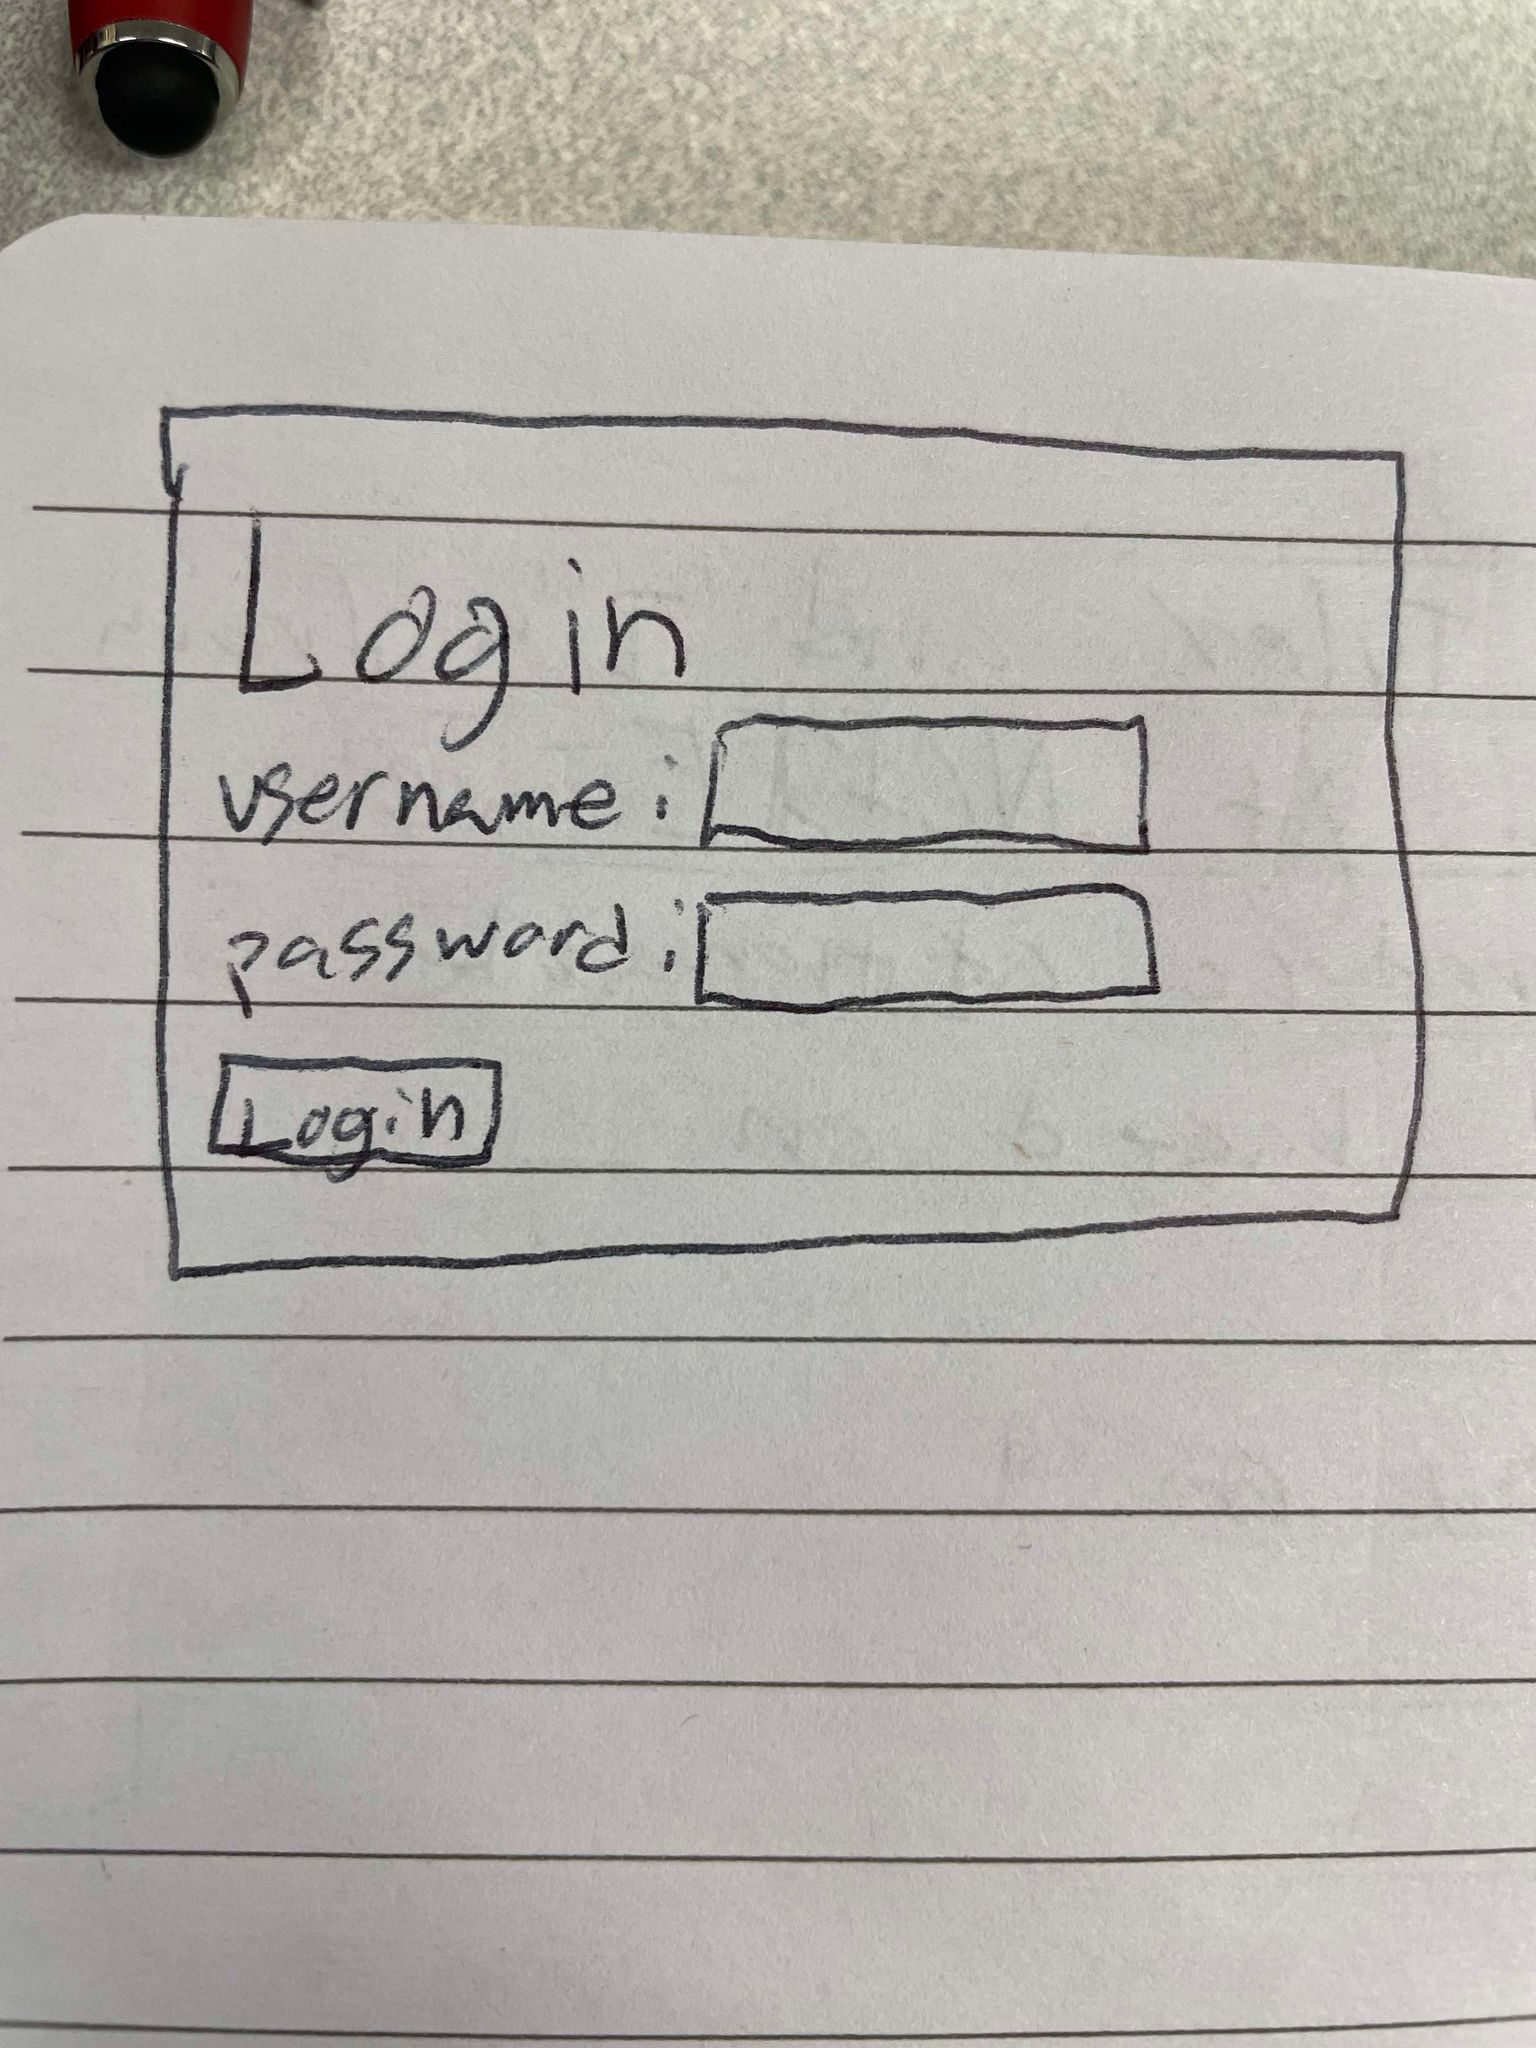 Login
username:
password:
Login